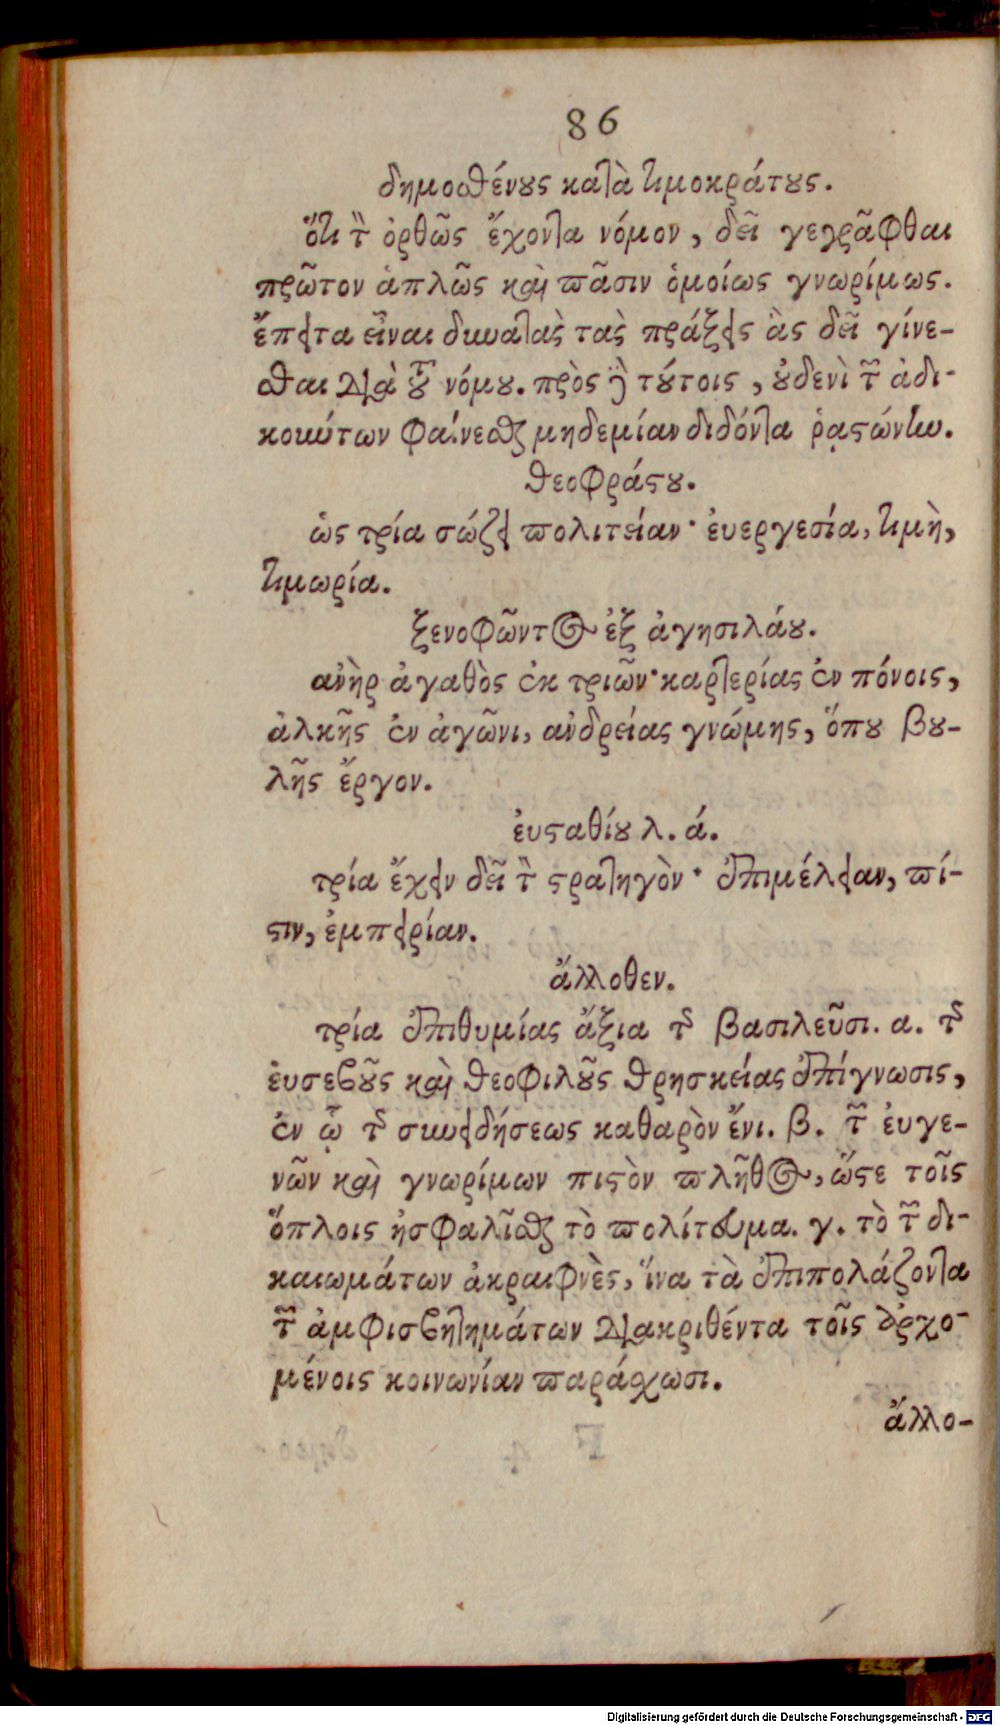 86
δημοσθένους κατὰ τιμοκράτους.
ὅτι τὸν ὀρθῶς ἔχοντα νόμον, δεῖ γεγρᾶφθαι
πρῶτον ἁπλῶς καὶ πᾶσιν ὁμοίως γνωρίμως.
ἔπειτα εἶναι δυνατὰς τὰς πράξεις ἃς δεῖ γίνε-
σθαι διὰ τοῦ νόμου. πρὸς δὲ τούτοις, οὐδενὶ τῶν ἀδι-
κούντων φαίνεσθαι μηδεμίαν διδόντα ῥαστώνην.
θεοφράστου.
ὡς τρία σώζει πολιτείαν· ἐυεργεσία, τιμὴ,
τιμωρία.
ξενοφῶντος ἐξ ἀγησιλάου.
ἀνὴρ ἀγαθὸς ἐκ τριῶν· καρτερίας ἐν πόνοις,
ἀλκῆς ἐν ἀγῶνι, ἀνδρείας γνώμης, ὅπου βου-
λῆς ἔργον.
ἐυσταθίου λ. ά.
τρία ἔχειν δεῖ τὸν στρατηγὸν· ἐπιμέλειαν, πί-
στιν, ἐμπειρίαν.
ἄλλοθεν.
τρία ἐπιθυμίας ἄξια τοῖς βασιλεῦσι. α. τῆς
ἐυσεβοῦς καὶ θεοφιλοῦς θρησκείας ἐπίγνωσις,
ἐν ᾧ τῆς συνειδήσεως καθαρὸν ἔνι. β. τῶν ἐυγε-
νῶν καὶ γνωρίμων πιστὸν πλῆθος, ὥστε τοῖς
ὅπλοις ἠσφαλῖσθαι τὸ πολίτευμα. γ. τὸ τῶν δι-
καιωμάτων ἀκραιφνὲς, ἵνα τὰ ἐπιπολάζοντα
τῶν ἀμφισβητημάτων διακριθέντα τοῖς ἀρχο-
μένοις κοινωνίαν παράσχωσι.
ἄλλο-
Digitalisierung gefördert durch die Deutsche Forschungsgemeinschaft - DFG